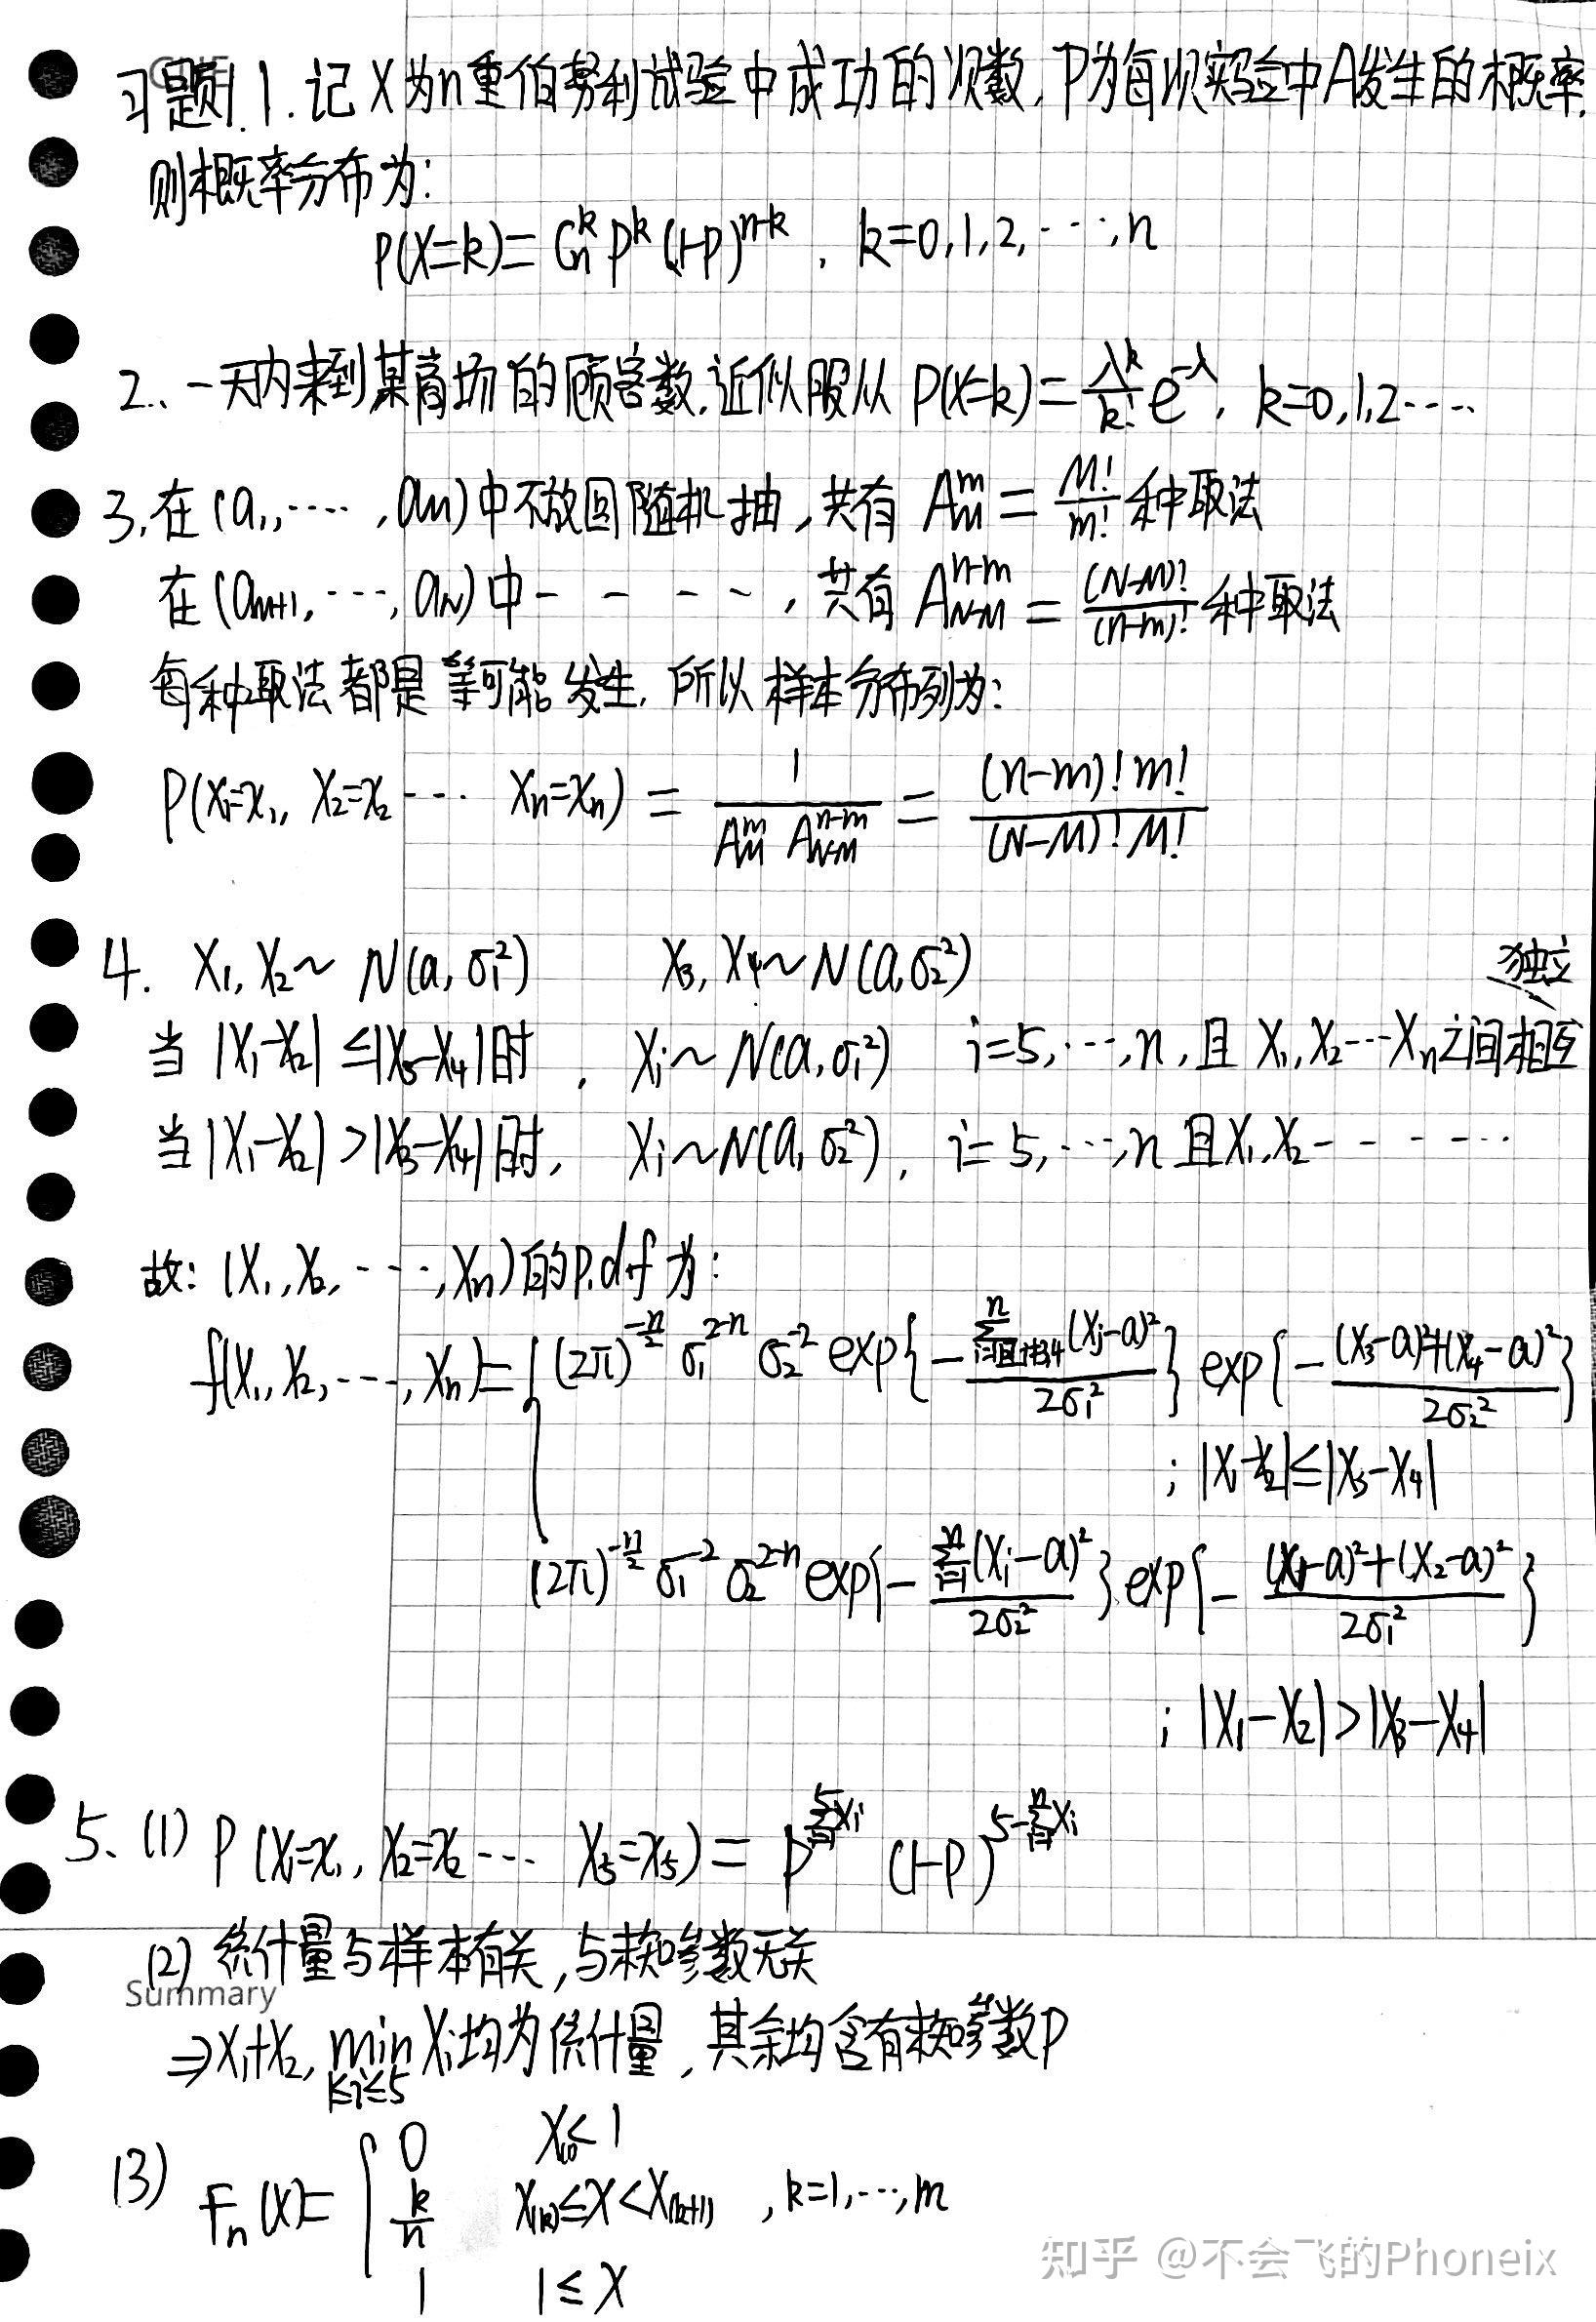 习题1. 1. 记X为n重伯努利试验中成功的次数, P为每次实验中A发生的概率,
则概率分布为:
P(X=k)= Cₙᵏ Pᵏ (1-P)ⁿ⁻ᵏ , k=0,1,2,⋯,n
2. 一天内来到某商场的顾客数.近似服从 P(X=k)= λᵏ/k! e^{-λ}, k=0,1,2⋯⋯
3. 在(a₁,⋯⋯,a_M)中不放回随机抽,共有 A_M^m = M!/m! 种取法
在(a_{M+1},⋯,a_N)中- - - - -,共有 A_{N-M}^{n-m} = (N-M)!/(n-m)! 种取法
每种取法都是等可能发生, 所以样本分布列为:
P(X₁=x₁, X₂=x₂ ⋯⋯ Xₙ=xₙ) = 1/(A_M^m A_{N-M}^{n-m}) = (n-m)! m!/((N-M)! M!)
独立
4. X₁, X₂ ~ N(a, σ₁²) X₃, X₄ ~ N(a, σ₂²)
当 |X₁-X₂| ≤ |X₃-X₄| 时, Xᵢ ~ N(a, σ₁²) i=5,⋯,n, 且 X₁,X₂⋯Xₙ之间相互
当 |X₁-X₂| > |X₃-X₄| 时, Xᵢ ~ N(a, σ₂²), i=5,⋯,n 且X₁,X₂- - - - -
故: (X₁,X₂,⋯⋯,Xₙ)的p.d.f 为:
f(X₁,X₂,⋯,Xₙ)= { (2π)^{-n/2} σ₁^{2-n} σ₂^{-2} exp{ - Σⁿ (Xᵢ-a)²/2σ₁² } exp{ - ((X₃-a)²+(X₄-a)²)/2σ₂² }
; |X₁-X₂| ≤ |X₃-X₄|
(2π)^{-n/2} σ₁^{-2} σ₂^{2-n} exp{ - Σⁿ (Xᵢ-a)²/2σ₂² } exp{ - ((X₁-a)²+(X₂-a)²)/2σ₁² }
; |X₁-X₂| > |X₃-X₄|
5. (1) P(X₁=x₁, X₂=x₂ ⋯⋯ X₅=x₅) = P^{Σ_{i=1}^5 Xᵢ} (1-P)^{5-Σ_{i=1}^n Xᵢ}
(2) 统计量与样本有关,与未知参数无关
Summary
⇒X₁+X₂, min_{1≤i≤5} Xᵢ均为统计量, 其余均含有未知参数P
(3) Fₙ(X)= { 0 X₍₁₎<1
k/n X₍ₖ₎≤X<X₍ₖ₊₁₎ , k=1,⋯,m
1 1≤X
知乎 @不会飞的Phoneix